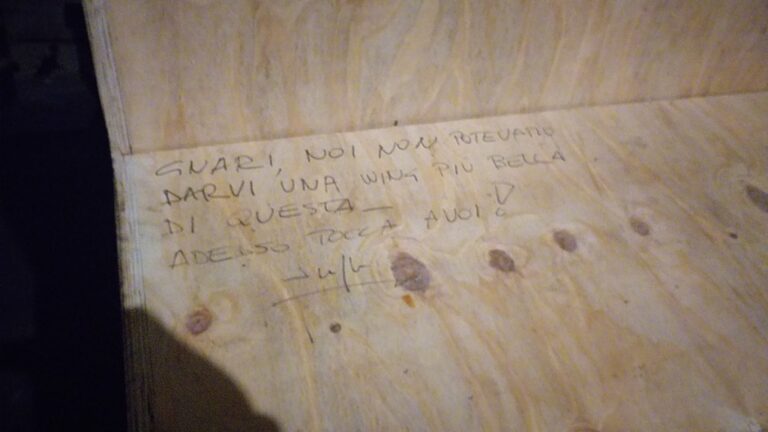 GNARI, NOI NON POTEVAMO
DARVI UNA WING PIÙ BELLA
DI QUESTA_
ADESSO TOCCA A VOI!